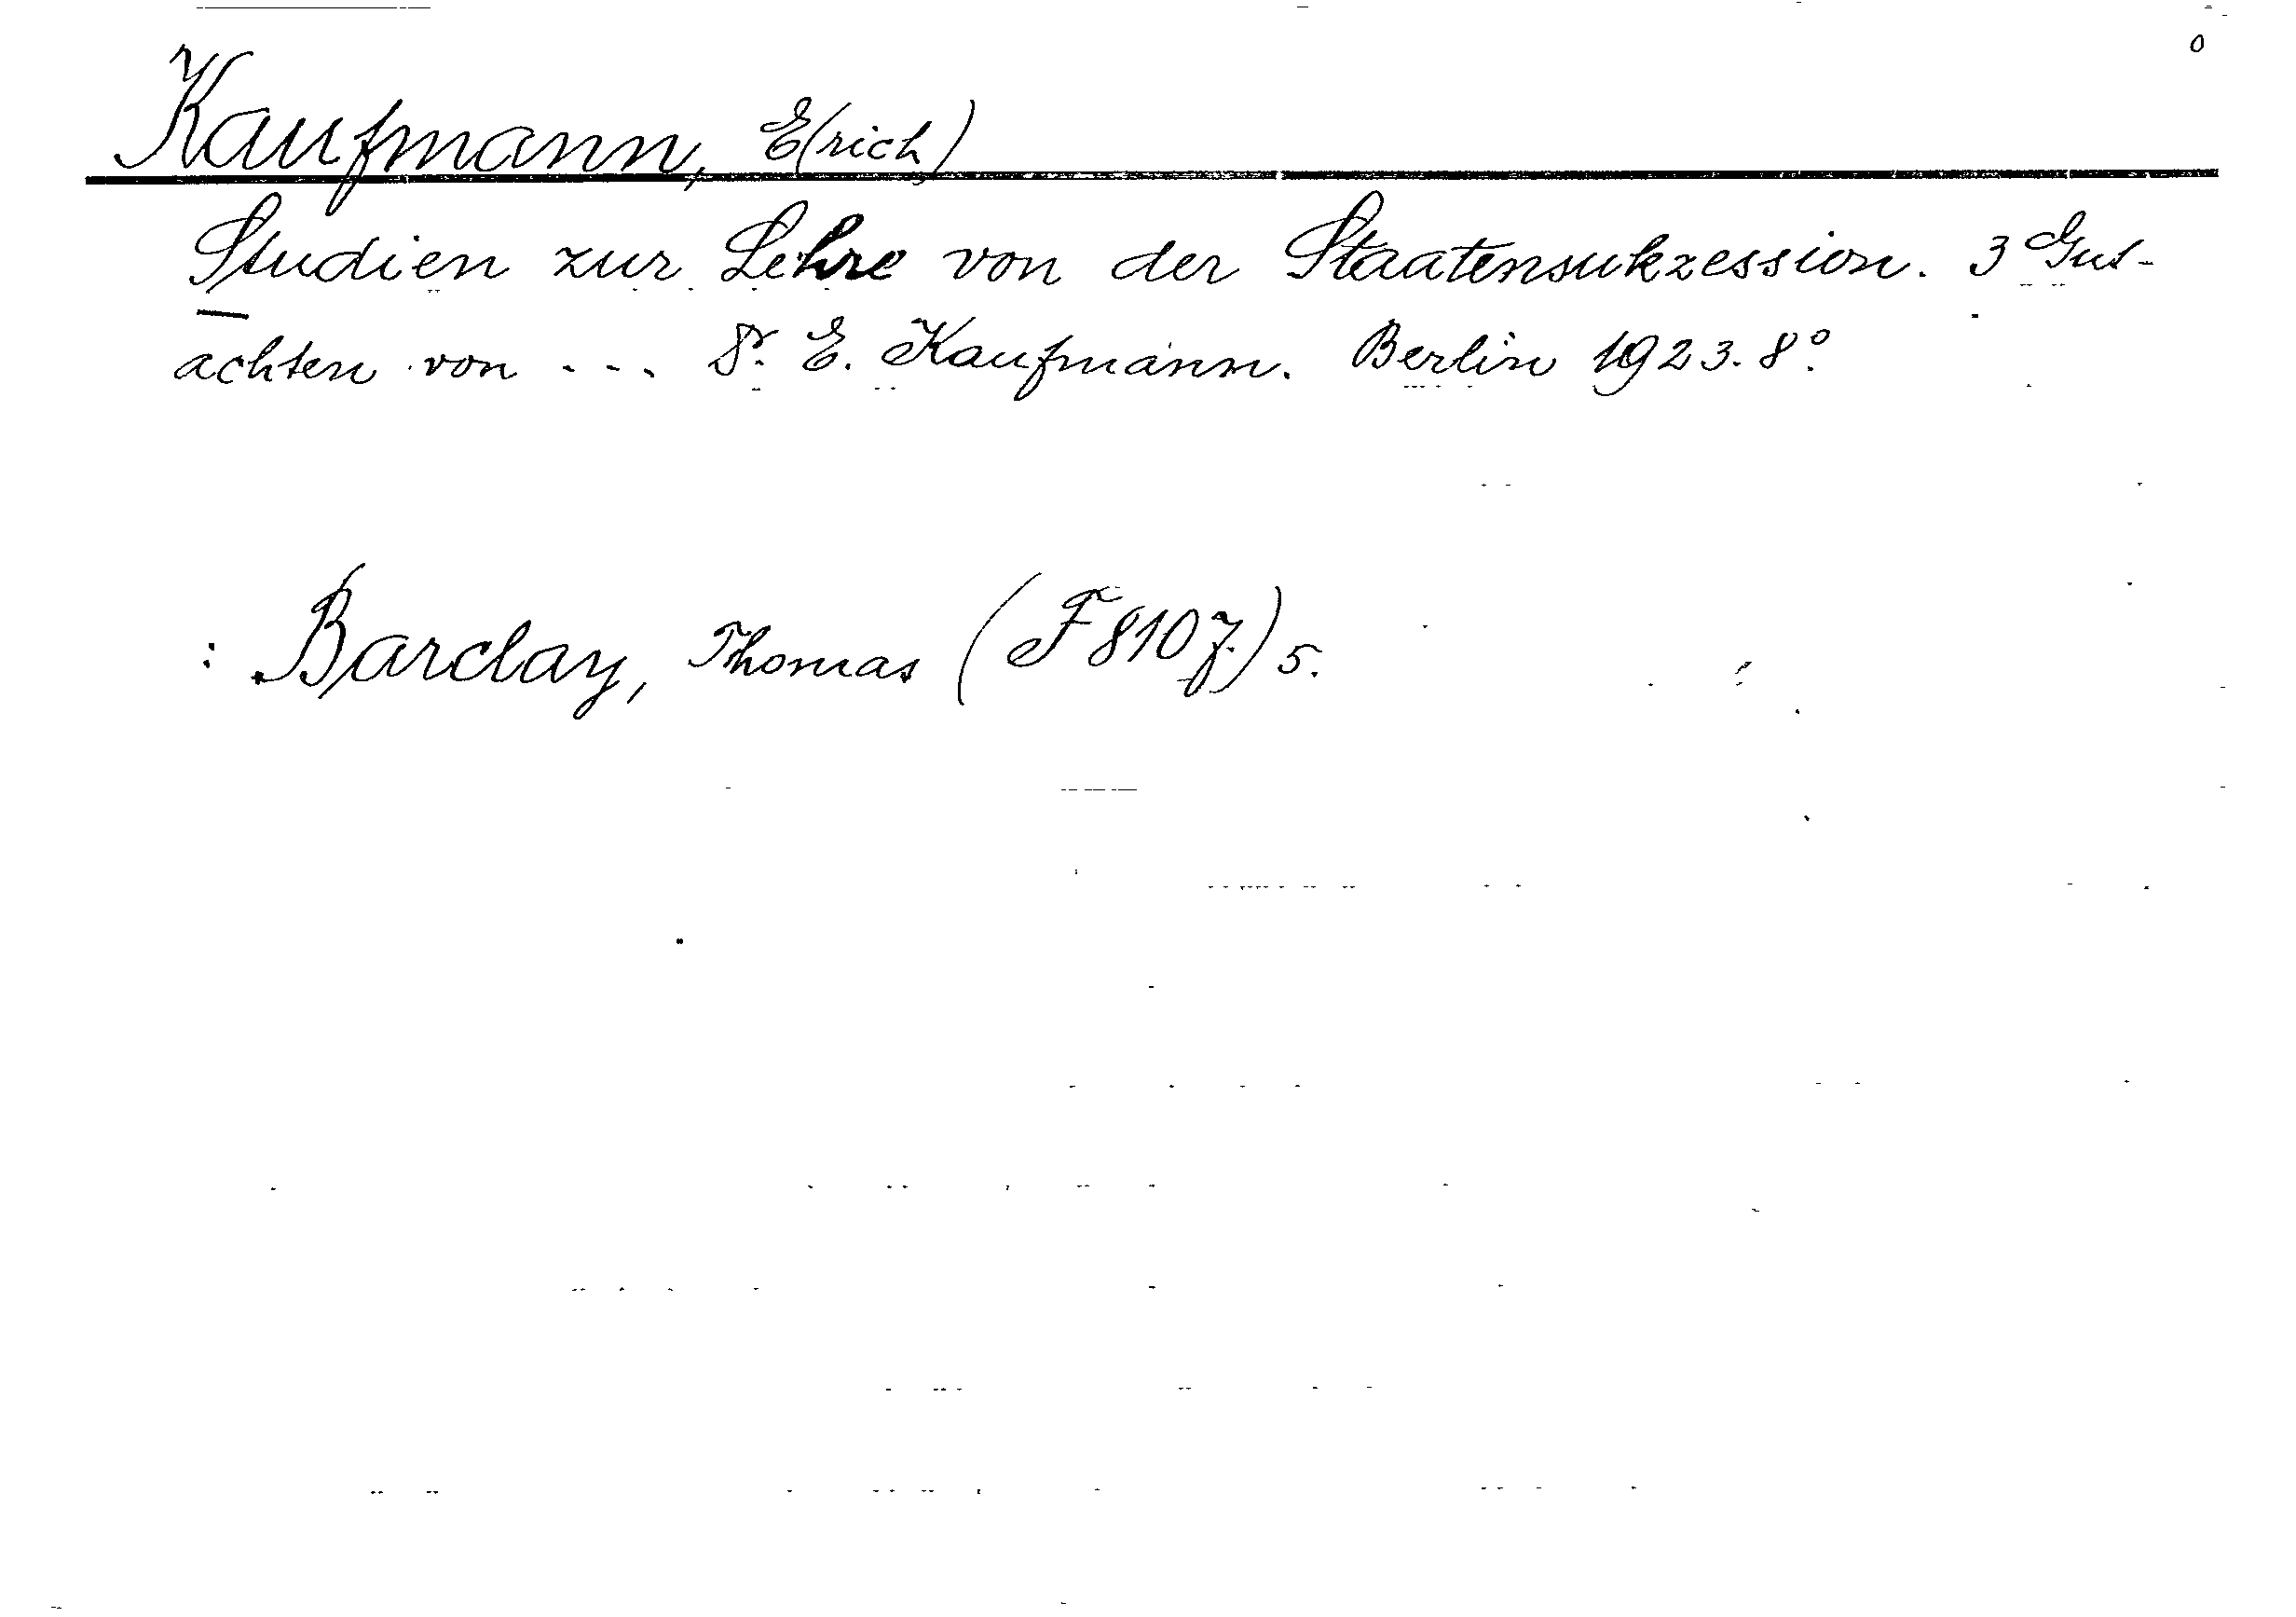 0
Kaufmann, E(rich)
Studien zur Lehre von der Staatensukzession. 3 Gut-
achten von ... Dr. E. Kaufmann. Berlin 1923. 8°.
: Barclay, Thomas (F 8107.) 5.